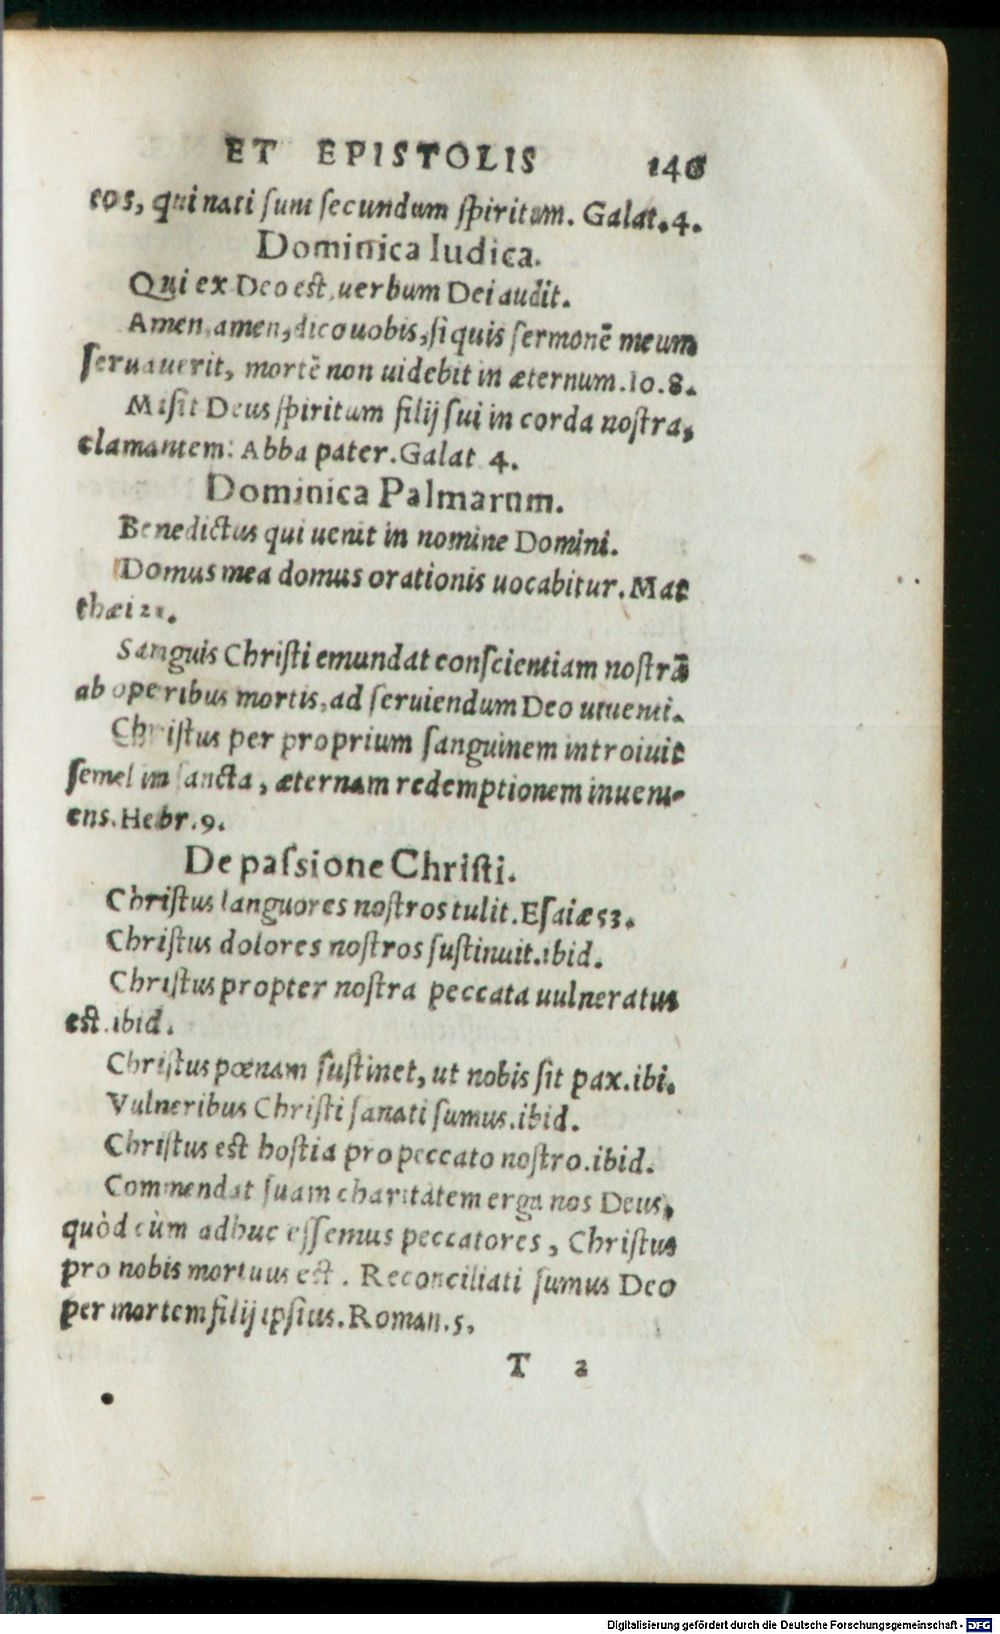 ET EPISTOLIS 140
eos, qui nati sunt secundum spiritum. Galat. 4.
Dominica Iudica.
Qui ex Deo est, uerbum Dei audit.
Amen, amen, dico uobis, si quis sermonē meum
seruauerit, mortē non uidebit in æternum. Io. 8.
Misit Deus spiritum filij sui in corda nostra,
clamantem: Abba pater. Galat 4.
Dominica Palmarum.
Benedictus qui uenit in nomine Domini.
Domus mea domus orationis uocabitur. Mat
thæi 21.
Sanguis Christi emundat conscientiam nostrā
ab operibus mortis, ad seruiendum Deo uiuenti.
Christus per proprium sanguinem introiuit
semel in sancta, æternam redemptionem inueni-
ens. Hebr. 9.
De passione Christi.
Christus languores nostros tulit. Esaiæ 53.
Christus dolores nostros sustinuit. ibid.
Christus propter nostra peccata uulneratus
est. ibid.
Christus pœnam sustinet, ut nobis sit pax. ibi.
Vulneribus Christi sanati sumus. ibid.
Christus est hostia pro peccato nostro. ibid.
Commendat suam charitatem erga nos Deus,
quòd cùm adhuc essemus peccatores, Christus
pro nobis mortuus est. Reconciliati sumus Deo
per mortem filij ipsius. Roman. 5.
T 2
Digitalisierung gefördert durch die Deutsche Forschungsgemeinschaft - DFG